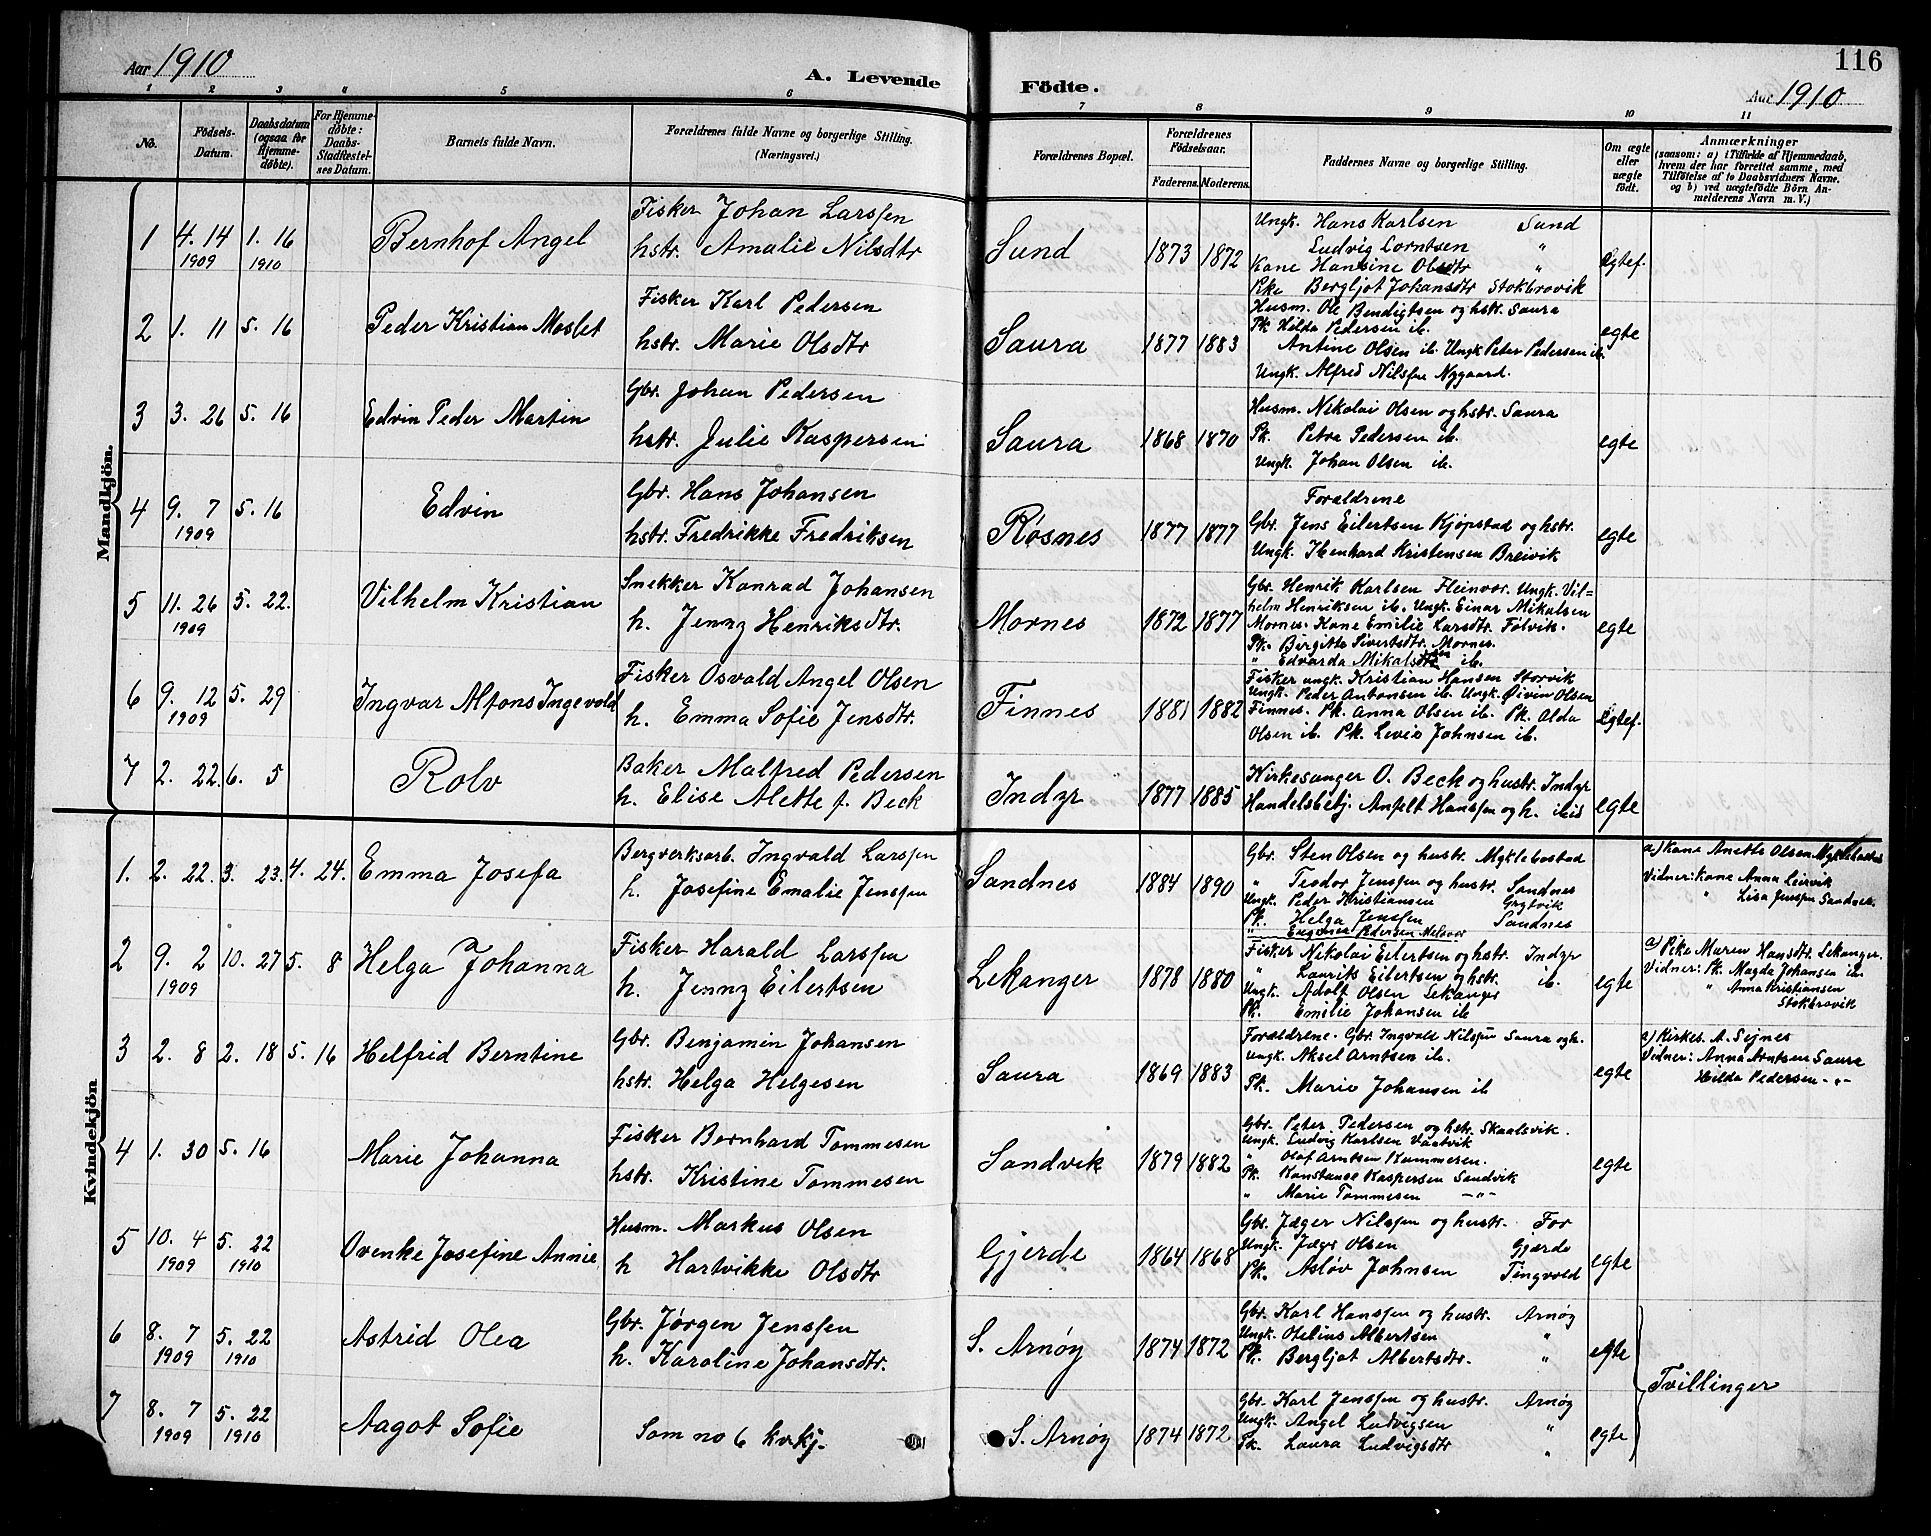 Aar 1910
A. Levende
Födte.
116
Aar 1910
1 2 3 4 5 6 7 8 9 10 11
No.
Födsels-Datum.
Daabsdatum (ogsaa for Hjemme-döbte).
For Hjemme-döbte: Daabs-Stadfæstel-ses Datum.
Barnets fulde Navn.
Forældrenes fulde Navne og borgerlige Stilling. (Næringsvei.)
Forældrenes Bopæl.
Forældrenes Födselsaar.
Faderens. Moderens.
Faddernes Navne og borgerlige Stilling.
Om ægte eller uægte födt.
Anmærkninger
(saasom: a) i Tilfælde af Hjemmedaab,
hvem der har forrettet samme, med
Tilföielse af to Daabsvidners Navne.
og b) ved uægtefödte Börn An-
melderens Navn m.V.)
Mandkjön.
1 4. 14 1909 1. 16 1910 Bernhof Angel
Fisker Johan Larssen
hstr. Amalie Nilsdtr
Sund 1873 1872
Ungk. Hans Karlsen Sund
Ludvig Corntsen "
Kone Hansine Olsdtr "
Pke Bergljot Johansdtr Stokbrovik
Ægtef.
2 1. 11 5. 16 Peder Kristian Moslet
Fisker Karl Pedersen
hstr. Marie Olsdtr
Saura 1877 1883
Husm. Ole Bendigtsen og hstr. Saura
Pk Hilda Pedersen ib.
Antine Olsen ib. Ungk Peter Pedersen ib.
Ungk. Alfred Nilssen Nygaard.
egte
3 3. 26 5. 16 Edvin Peder Martin
Gbr. Johan Pedersen
hstr. Julie Kaspersen
Saura 1868 1870
Husm. Nikolai Olsen og hstr. Saura
Pk. Petra Pedersen ib.
Ungk. Johan Olsen ib.
egte
4 9. 7 1909 5. 16 Edvin
Gbr. Hans Johansen
hstr. Fredrikke Fredriksen
Røsnes 1877 1877
Forældrene
Gbr. Jens Eilertsen Kjøpstad og hstr.
Ungk. Kristensen Breivik
egte
5 11. 26 1909 5. 22. Vilhelm Kristian
Snekker Konrad Johansen
h. Jenny Henriksdtr.
Mornes 1872 1877
Gbr. Henrik Karlsen Fleinvær. Ungk. Vil=
helm Henriksen ib. Ungk. Einar Mikalsen
Mornes. Kone Emilie Larsdtr. Følvik.
Pk. Birgitte Sivertsdtr. Mornes.
" Edvarda Mikalsen ib.
egte
6 9. 12 1909 5. 29 Ingvar Alfons Ingevald
Fisker Osvald Angel Olsen
h. Emma Sofie Jensdtr.
Finnes 1881 1882
Fisker ungk. Kristian Hansen Storvik
Ungk. Peder Antonsen ib. Ungk. Øivin Olsen
Finnes. Pk. Anna Olsen ib. Pk. Alda
Olsen ib. Pk. Levio Johnsen ib.
Egtef.
7 2. 22. 6. 5 Rolv
Baker Malfred Pedersen
h. Elise Alette f. Beck
Indyr 1877 1885
Kirkesanger O. Beck og hustr. Indyr
Handelsbetj. Anfelt Hanssen og h. ibid
egte
Kvindekjön
1. 2. 22. 3. 23. 4. 24. Emma Josefa
Bergverksarb. Ingvald Larssen
h. Josefine Emalie Jenssen
Sandnes 1884 1890
Gbr. Sten Olsen og hustr. Myklebostad
" Teodor Jenssen og hustr. Sandnes
Ungk. Peder Kristiansen Grytvik
Pk. Helga Jenssen Sandnes
" Eugenie Pedersen Melsvor
a) Kone Anette Olsen Myklebostad
Vidner: Kone Anna Leirvik
" Lisa Jenssen Sandnes.
2 9. 2 1909 10. 27 5. 8 Helga Johanna
Fisker Harald Larssen
h. Jenny Eilertsen
Lekanger 1878 1880
Fisker Nikolai Eilertsen og hstr. Indyr
" Laurits Eilertsen og hstr. ib.
Ungk. Adolf Olsen Lekanger
Pk. Emilie Johansen ib
egte
a) Pike Maren Hansdtr. Lekanger.
Vidner: Pk. Magda Johansen ib
" Anna Kristiansen
Stokbrovik
3 2. 8 2. 18 5. 16 Helfrid Berntine
Gbr. Benjamin Johansen
hstr. Helga Helgesen
Saura 1869 1883
Forældrene. Gbr. Ingvald Nilssen Saura og h.
Ungk. Aksel Arntsen ib.
Pk. Marie Johansen ib
egte
a) Kirkes. A. Seines
Vidner: Anna Arntsen Saura
Hilda Pedersen -"-
4 1. 30 5. 16 Marie Johanna
Fisker Bernhard Tommesen
hstr. Kristine Tommesen
Sandvik 1879 1882
Gbr. Peter Pedersen og hstr. Skaalsvik.
Ungk. Ludvig Karlsen Vaatvik
" Olaf Arntsen Kammeren.
Pk. Konstanse Kaspersen Sandvik
" Marie Tommesen -"-
egte
5 10. 4 1909 5. 22 1910 Ovenke Josefine Annie
Husm. Markus Olsen
h Hartvikke Olsdtr
Gjerde 1864 1868
Gbr. Jæger Nilssen og hustr. For
Ungk. Jæger Olsen Gjærde
Pk. Asløv Johnsen Tingvold
egte
6 8. 7 1909 5. 22 1910 Astrid Olea
Gbr. Jørgen Jenssen
h. Karoline Johansdtr.
S. Arnøy 1874 1872
Gbr. Karl Hanssen og hustr. Arnøy
Ungk. Otelius Albertsen "
Pk. Bergljot Albertsdtr. "
egte
Tvillinger
7 8. 7 1909 5. 22 1910 Aagot Sofie
Som no 6 kvkj.
S. Arnøy 1874 1872
Gbr. Karl Jenssen og hustr. Arnøy
Ungk. Angel Ludvigsen "
Pk. Laura Ludvigsdtr "
egte